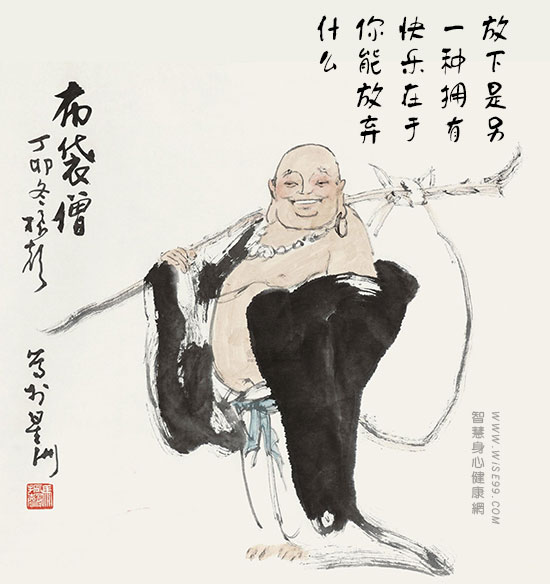 放下是另
一种拥有
快乐在于
你能放弃
什么
布袋僧
丁卯冬
写於星洲
WWW.WISE99.COM
智慧身心健康網